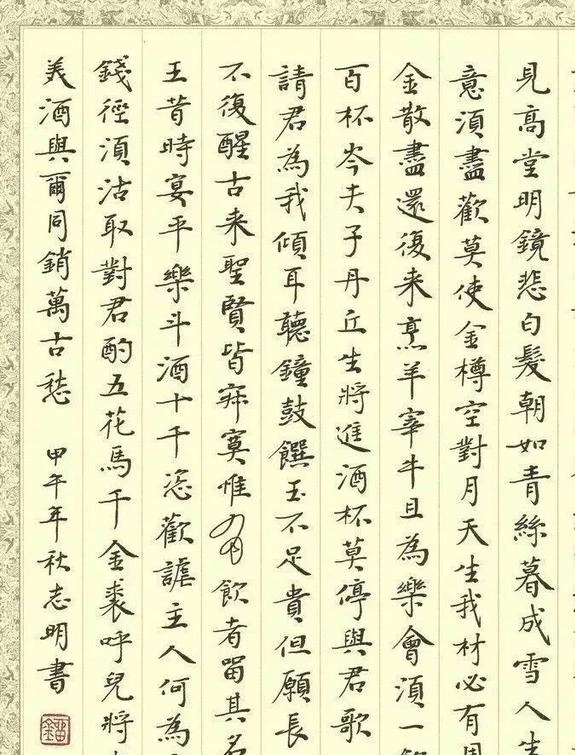 見高堂明鏡悲白髮朝如青絲暮成雪人生
意須盡歡莫使金樽空對月天生我材必有用
金散盡還復来烹羊宰牛且為樂會須一飲
百杯岑夫子丹丘生將進酒杯莫停與君歌
請君為我傾耳聽鐘鼓饌玉不足貴但願長
不復醒古来聖賢皆寂寞惟有飲者留其名
王昔時宴平樂斗酒十千恣歡謔主人何為
錢徑須沽取對君酌五花馬千金裘呼兒將
美酒與爾同銷萬古愁 甲午年秋志明書